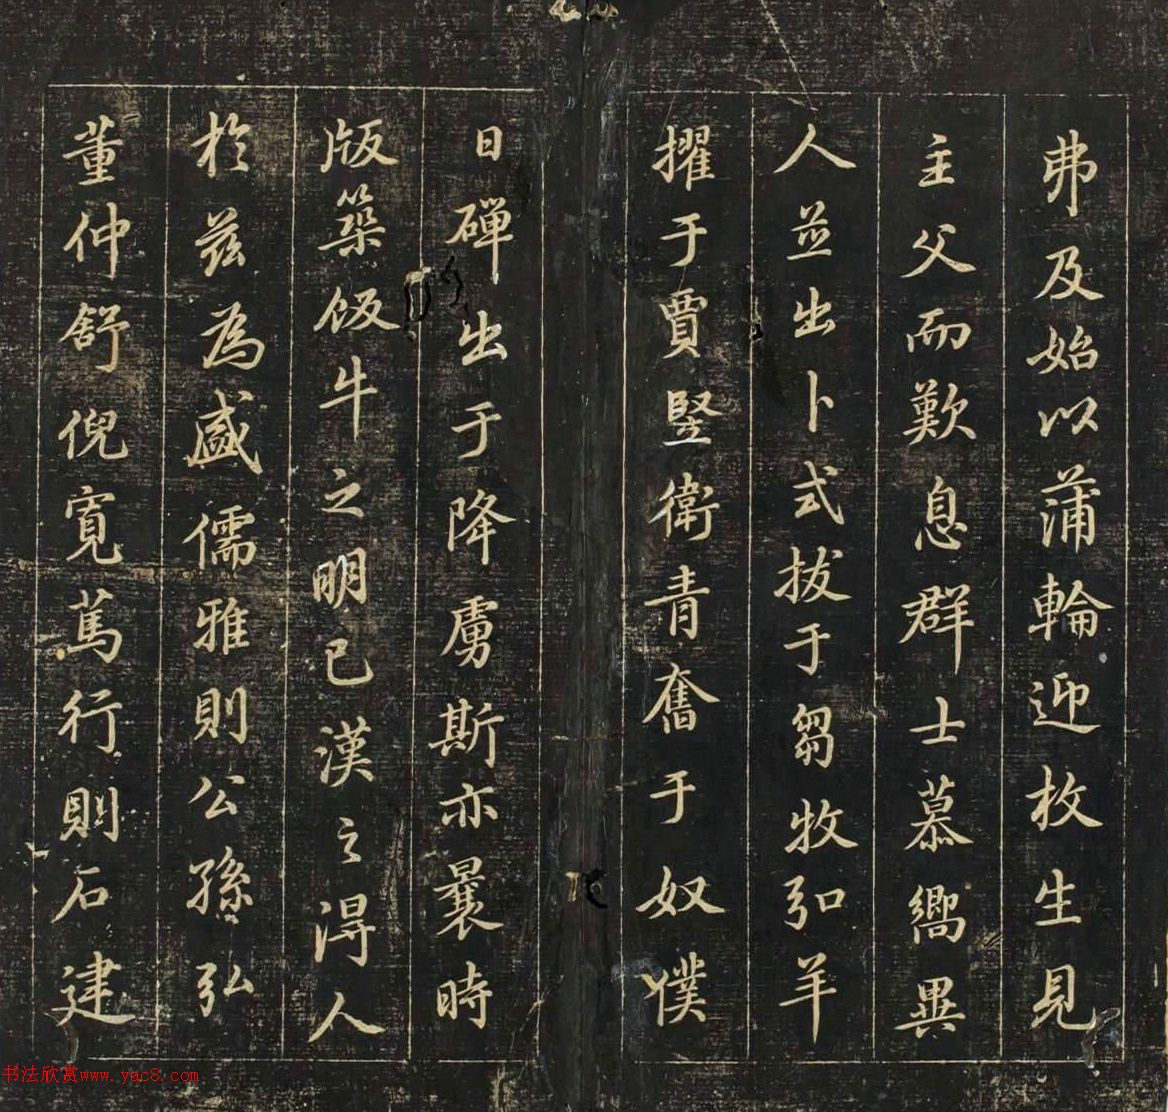 弗及始以蒲輪迎枚生見
主父而歎息群士慕嚮異
人並出卜式拔于芻牧弘羊
擢于賈豎衛青奮于奴僕
日磾出于降虜斯亦曩時
版築飯牛之明已漢之得人
於茲為盛儒雅則公孫弘
董仲舒倪寬篤行則石建
书法欣赏www.yac8.com